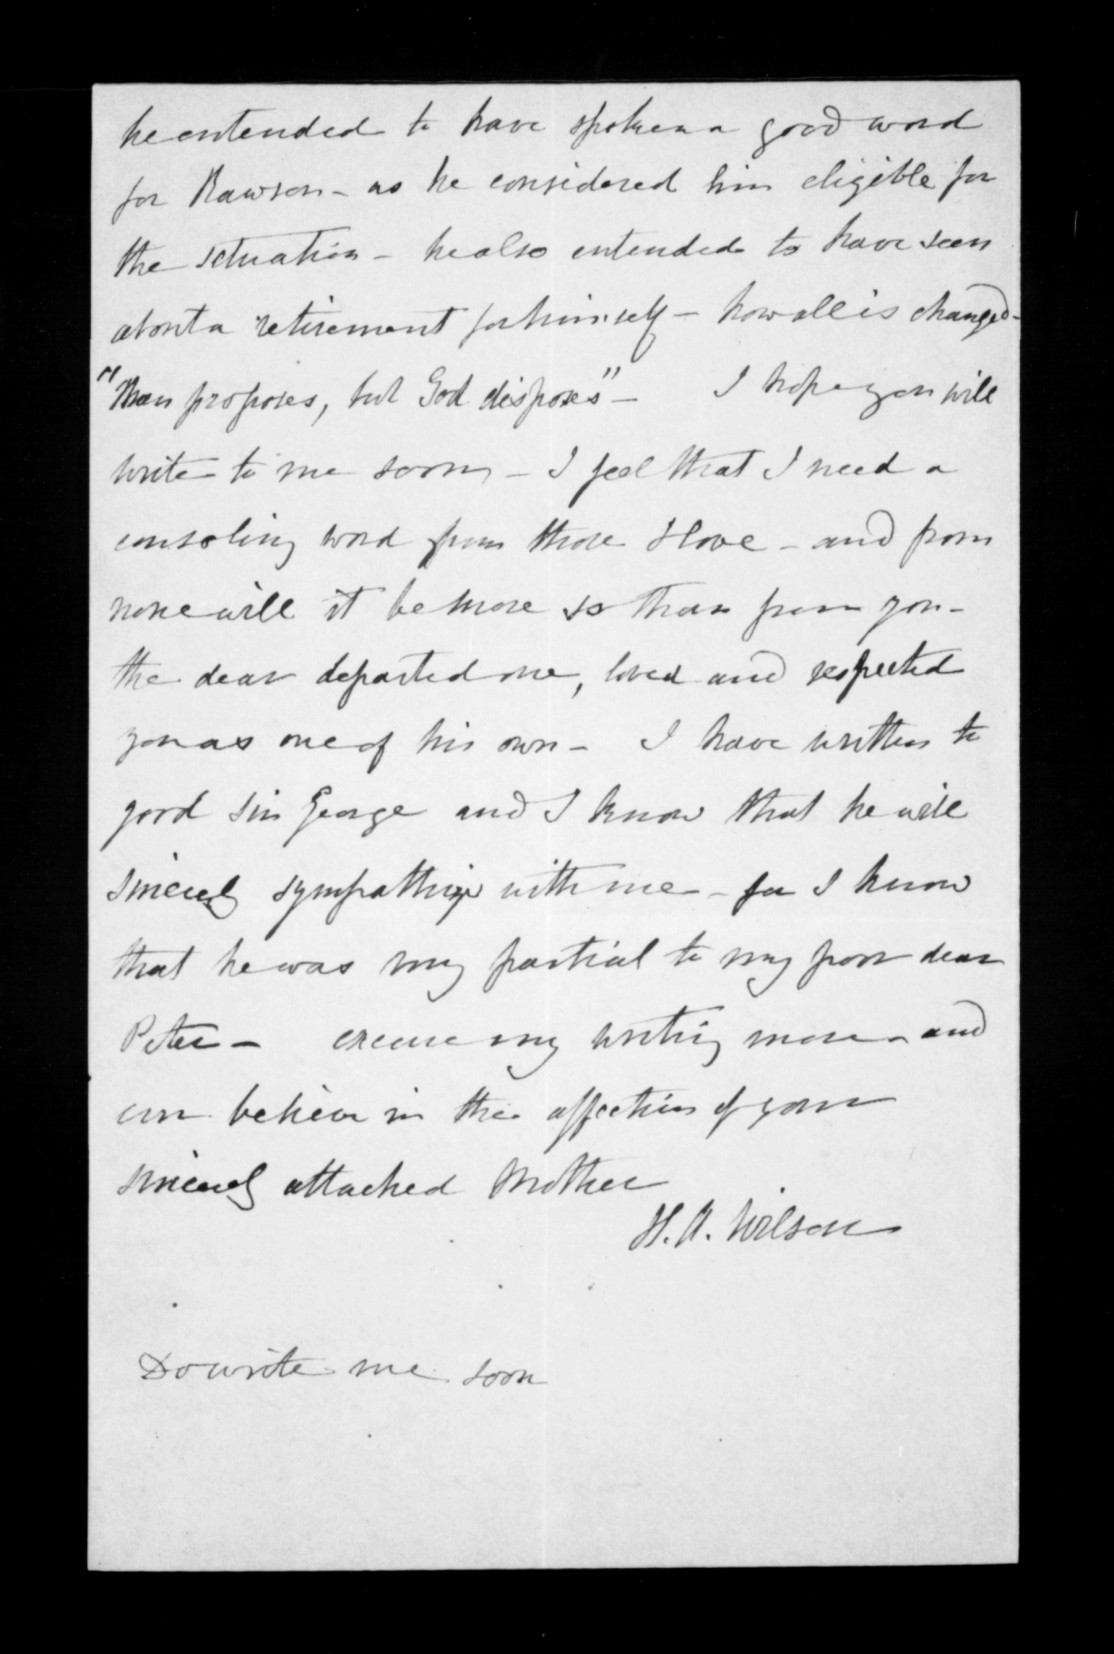 he entended to have spoken a good word
for Rawson - as he considered him eligible for
the setuation - he also entended to have seen
about a retirement for himself - how all is changed -
"Man proposes, but God disposes" - I hope you will
write to me soon - I feel that I need a
consoling word from those I love - and from
none will it be more so than from you -
the dear departed one, loved and respected
you as one of his own - I have written to
good Sir George and I know that he will
sincerely sympathize with me - for I know
that he was very partial to my poor dear
Peter - excuse my writing more - and
ever believe in the affection of your
sincerely attached Mother
H. A. Wilson
Do write me soon